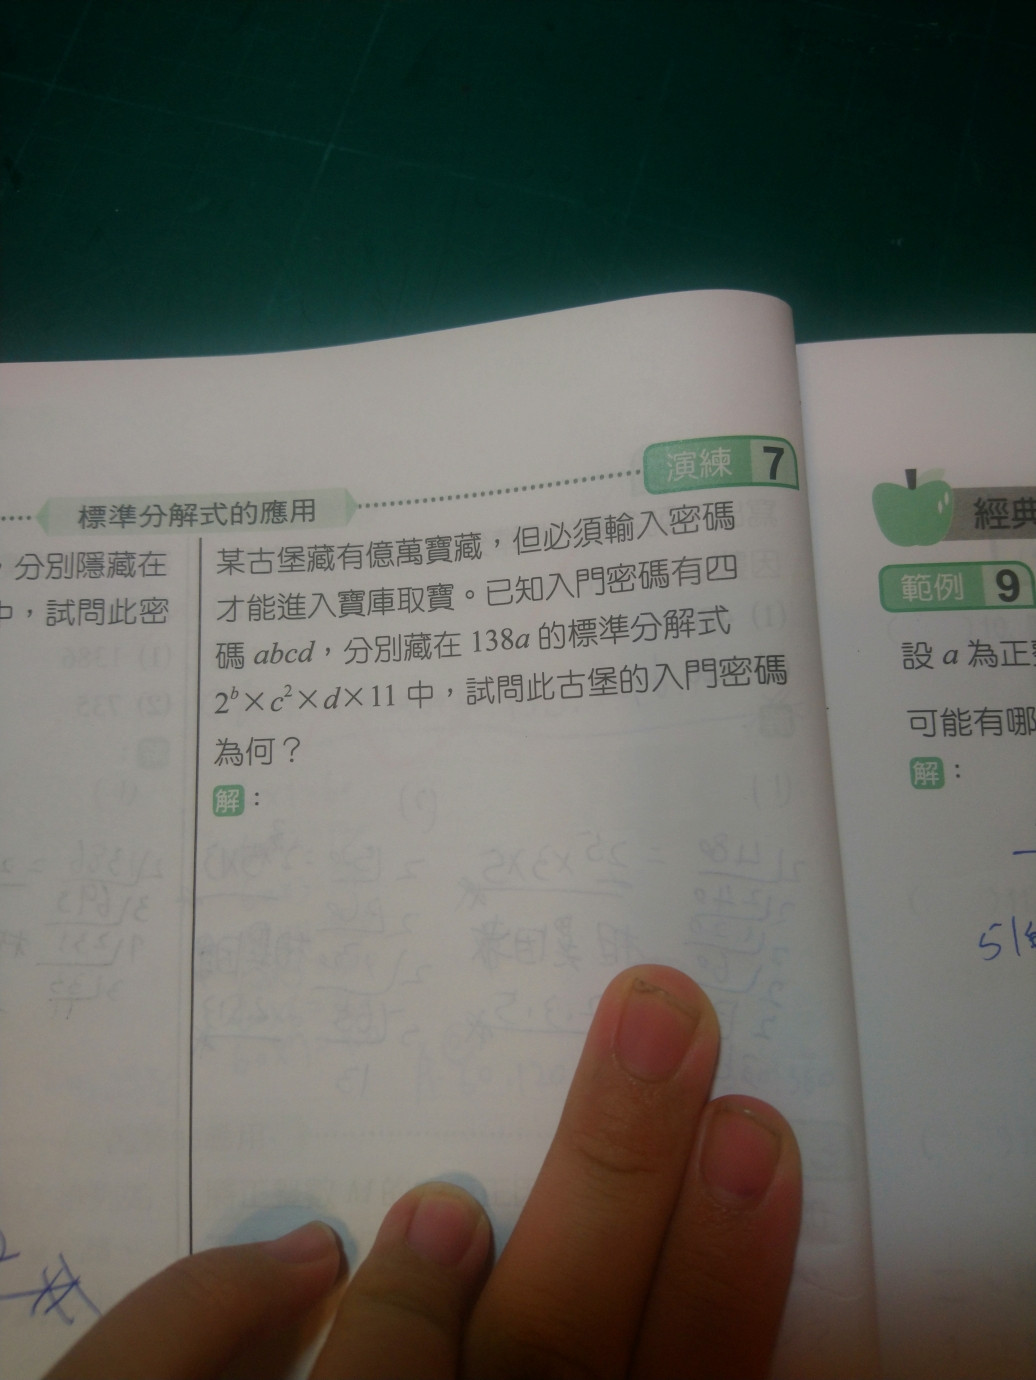 演練 7
標準分解式的應用
，分別隱藏在
中，試問此密
某古堡藏有億萬寶藏，但必須輸入密碼
才能進入寶庫取寶。已知入門密碼有四
碼 abcd，分別藏在 138a 的標準分解式
2ᵇ×c²×d×11 中，試問此古堡的入門密碼
為何？
解：
經典
範例 9
設 a 為正
可能有哪
解：